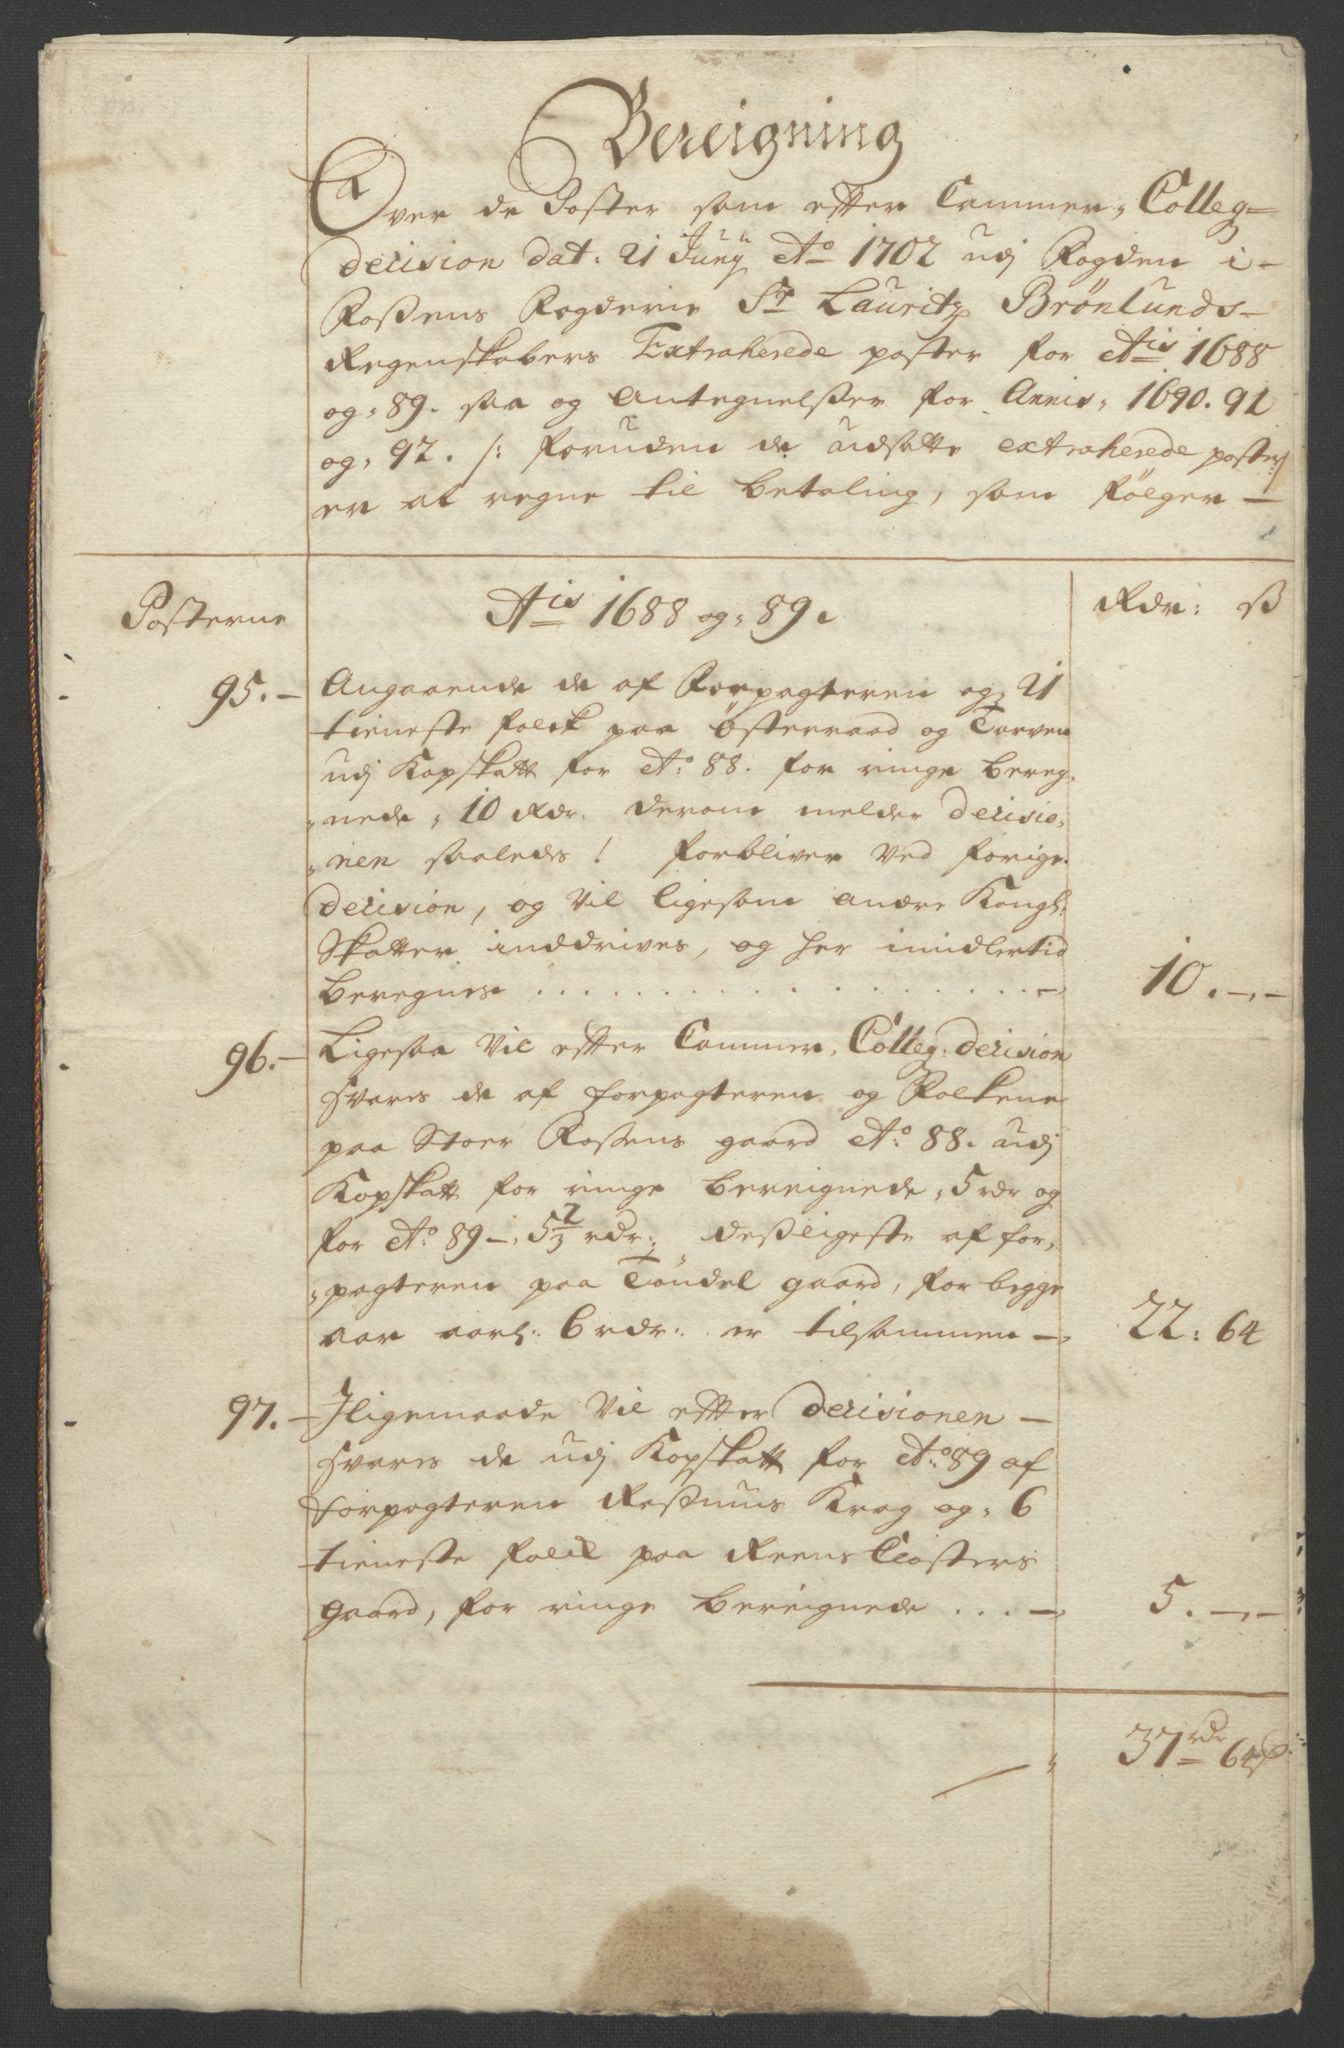 Bereigning
Over de Poster som efter Cammer, Colleg=
decision dat: 21 Junij Ao 1702 udj Fogden i-
Foßens Fogderie Sr Lauritz Brönlunds-
Regenskabers Extraherede poster for Ais 1688
og, 89. saa og Antegnelßer for Annis, 1690. 91
og, 92. /: foruden de udsatte extraherede poster/
er at regne til betaling, som følger -
Posterne
Ais 1688 og, 89.
Rdr: ß
95. - Angaaende de af Forpagteren og, 21
tieneste folck paa Østeraad og Tarven
udj Kopskatt for Ao: 88. for ringe bereg,
,nede, 10 Rdr: derom melder decisio,
,nen saaleds! forbliver ved forige
decision, og vil ligesom andre Kongl:
Skatter inddrives, og her imidlertid
beregnes . . . . . . . . . . . - 10. -,-
96. - Ligesaa vil efter Cammer, Colleg: decision
svares de af forpagteren og Folkene
paa Stoer Foßens gaard Ao: 88. udj
Kopskatt for ringe bereignede, 5 rdr og
for Ao: 89 -, 5 2/3 rdr:, deßligeste af for,
,pagteren paa Töndel gaard, for begge
aar aarl: 6 rdr: er tilsammen - 22: 64
97. - Iligemaade vil efter decisionen -
svares de udj Kopskatt for Ao: 89 af
forpagteren Raßmus Krag og, 6
tieneste folck paa Reens Closters
gaard, for ringe bereignede . . . - 5. -,-
37 rdr 64 ß